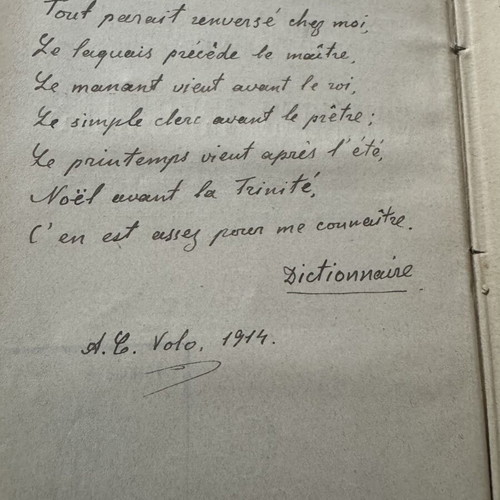 Tout parait renversé chez moi,
Le laquais précède le maître,
Le manant vient avant le roi,
Le simple clerc avant le prêtre;
Le printemps vient après l'été,
Noël avant la Trinité,
C'en est assez pour me connaître.
Dictionnaire
A. C. Volo. 1914.